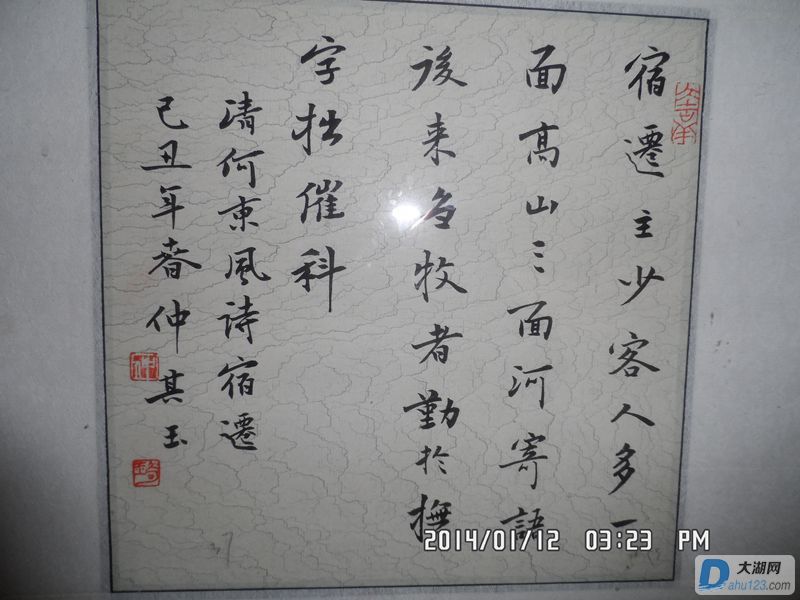 宿遷主少客人多一
面高山三面河寄語
後来牧者勤於撫
字拙催科
清何東風詩宿遷
己丑年春仲其玉
2014/01/12 03:23 PM
大湖网
Dahu123.com